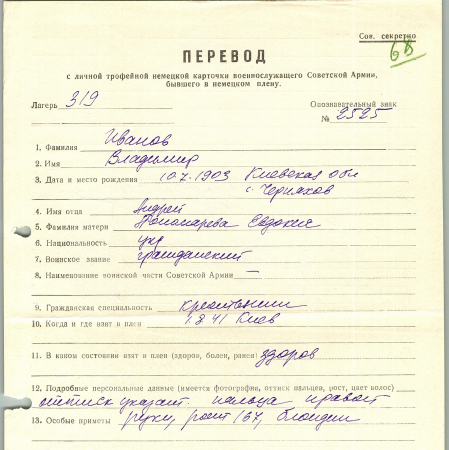 Сов. секретно
68
ПЕРЕВОД
с личной трофейной немецкой карточки военнослужащего Советской Армии,
бывшего в немецком плену.
Лагерь 319
Опознавательный знак
№ 2525
1. Фамилия Иванов
2. Имя Владимир
3. Дата и место рождения 10.7.1903 Киевская обл
с. Черняхов
4. Имя отца Андрей
5. Фамилия матери Пономарева Евдокия
6. Национальность укр
7. Воинское звание гражданский
8. Наименование воинской части Советской Армии —
9. Гражданская специальность крестьянин
10. Когда и где взят в плен 1.8.41 Киев
11. В каком состоянии взят в плен (здоров, болен, ранен) здоров
12. Подробные персональные данные (имеется фотография, оттиск пальцев, рост, цвет волос)
оттиск указат. пальца правой
13. Особые приметы руки, рост 167, блондин